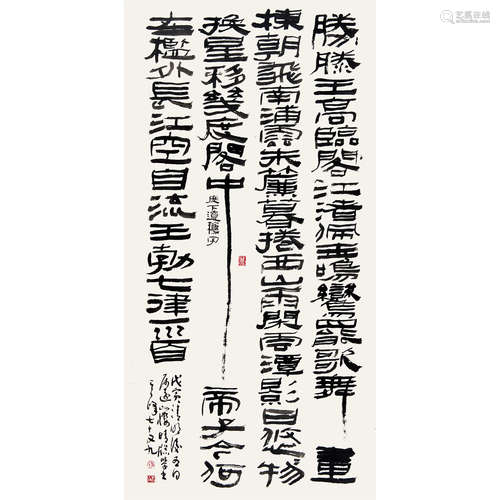 勝滕王高臨閣江渚佩玉鳴鸞罷歌舞 畫
棟朝飛南浦雲朱簾暮捲西山雨閑雲潭影日悠物
換星移幾度閣中 帝子今何
度下遺穐字
在檻外長江空自流王勃七律一首
戊寅清明後五日
七十又九